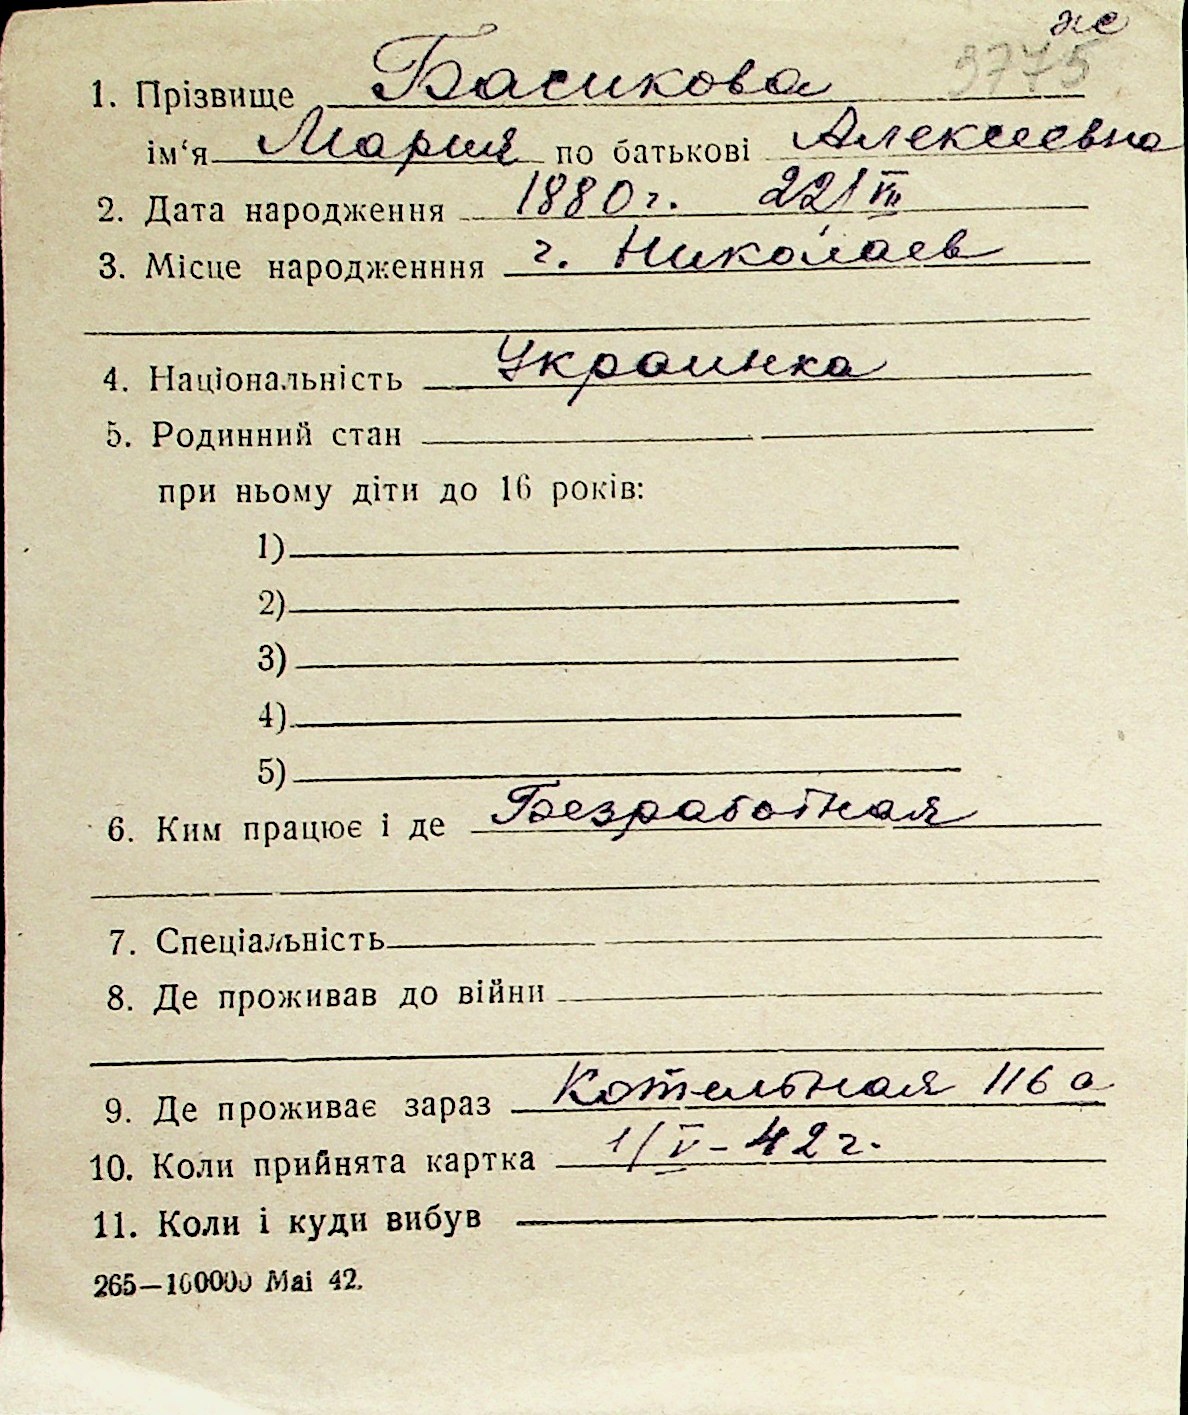 же
9775
1. Прізвище Басикова
ім‘я Мария по батькові Алексеевна
2. Дата народження 1880 г. 22/VII
3. Місце народженння г. Николаев
4. Національність Украинка
5. Родинний стан
при ньому діти до 16 років:
1)
2)
3)
4)
5)
6. Ким працює і де Безработная
7. Спеціальність
8. Де проживав до війни
9. Де проживає зараз Котельная 116 а
10. Коли прийнята картка 1/V – 42 г.
11. Коли і куди вибув
265—100000 Mai 42.